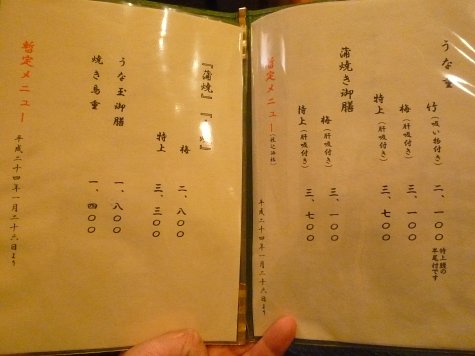 うな重
竹(吸い物付き) 二、一〇〇
特上鰻の
半尾付です
梅(肝吸付き) 三、一〇〇
特上(肝吸付き) 三、七〇〇
蒲焼き御膳
梅(肝吸付き) 三、一〇〇
特上(肝吸付き) 三、七〇〇
暫定メニュー(税込価格) 平成二十四年一月二十六日より
『蒲焼』
梅 二、八〇〇
特上 三、三〇〇
うな玉御膳 一、八〇〇
焼き鳥重 一、四〇〇
暫定メニュー 平成二十四年一月二十六日より